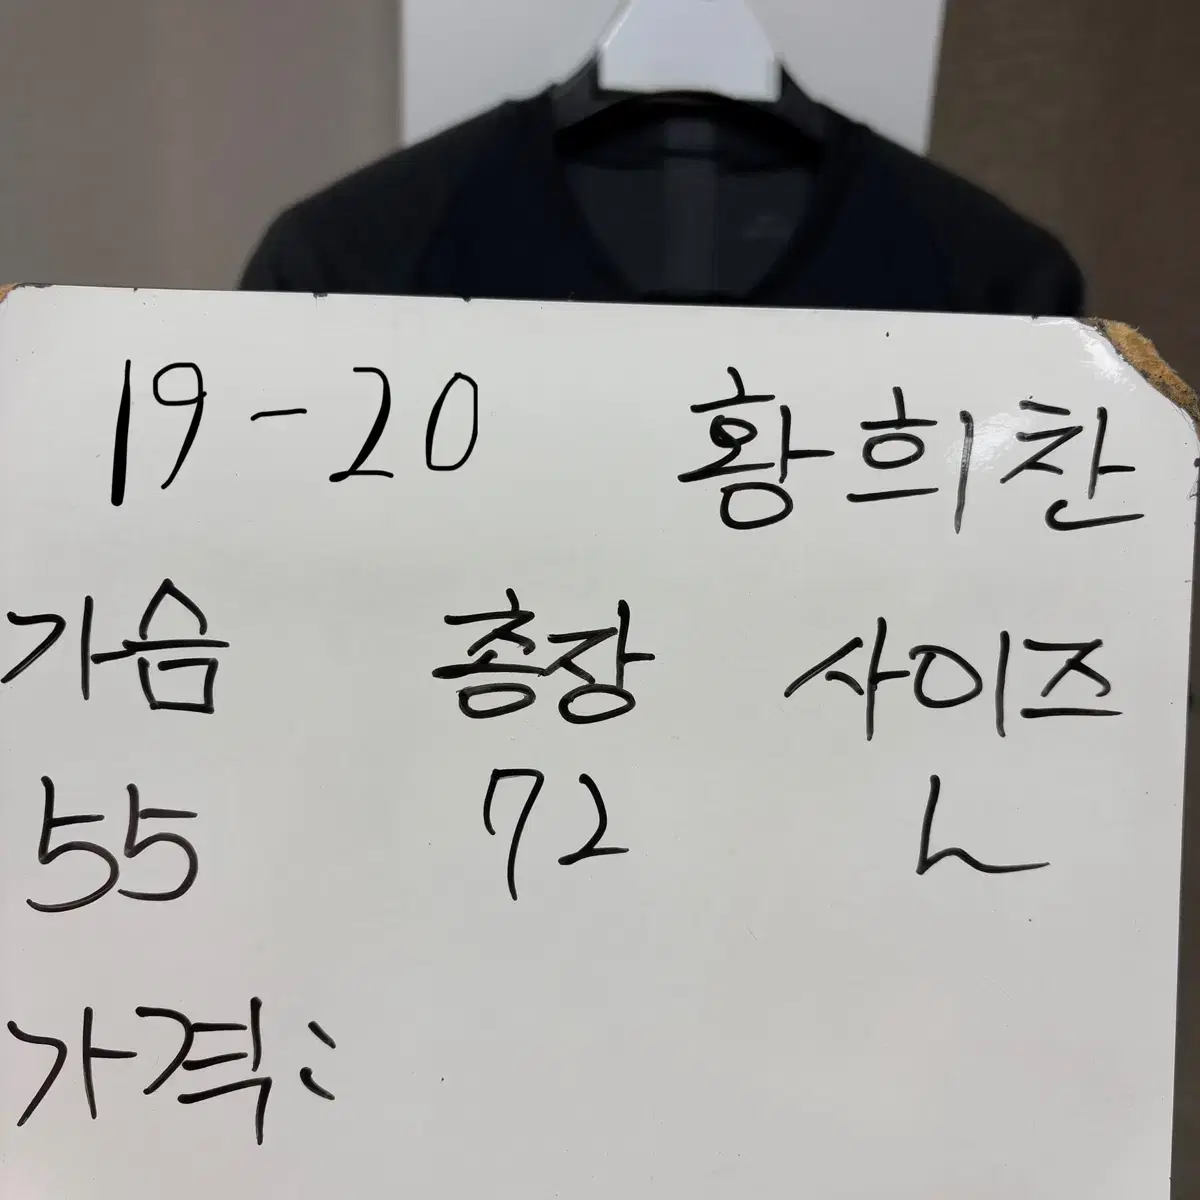 19-20 황희찬
가슴 총장 사이즈
55 72 L
가격: